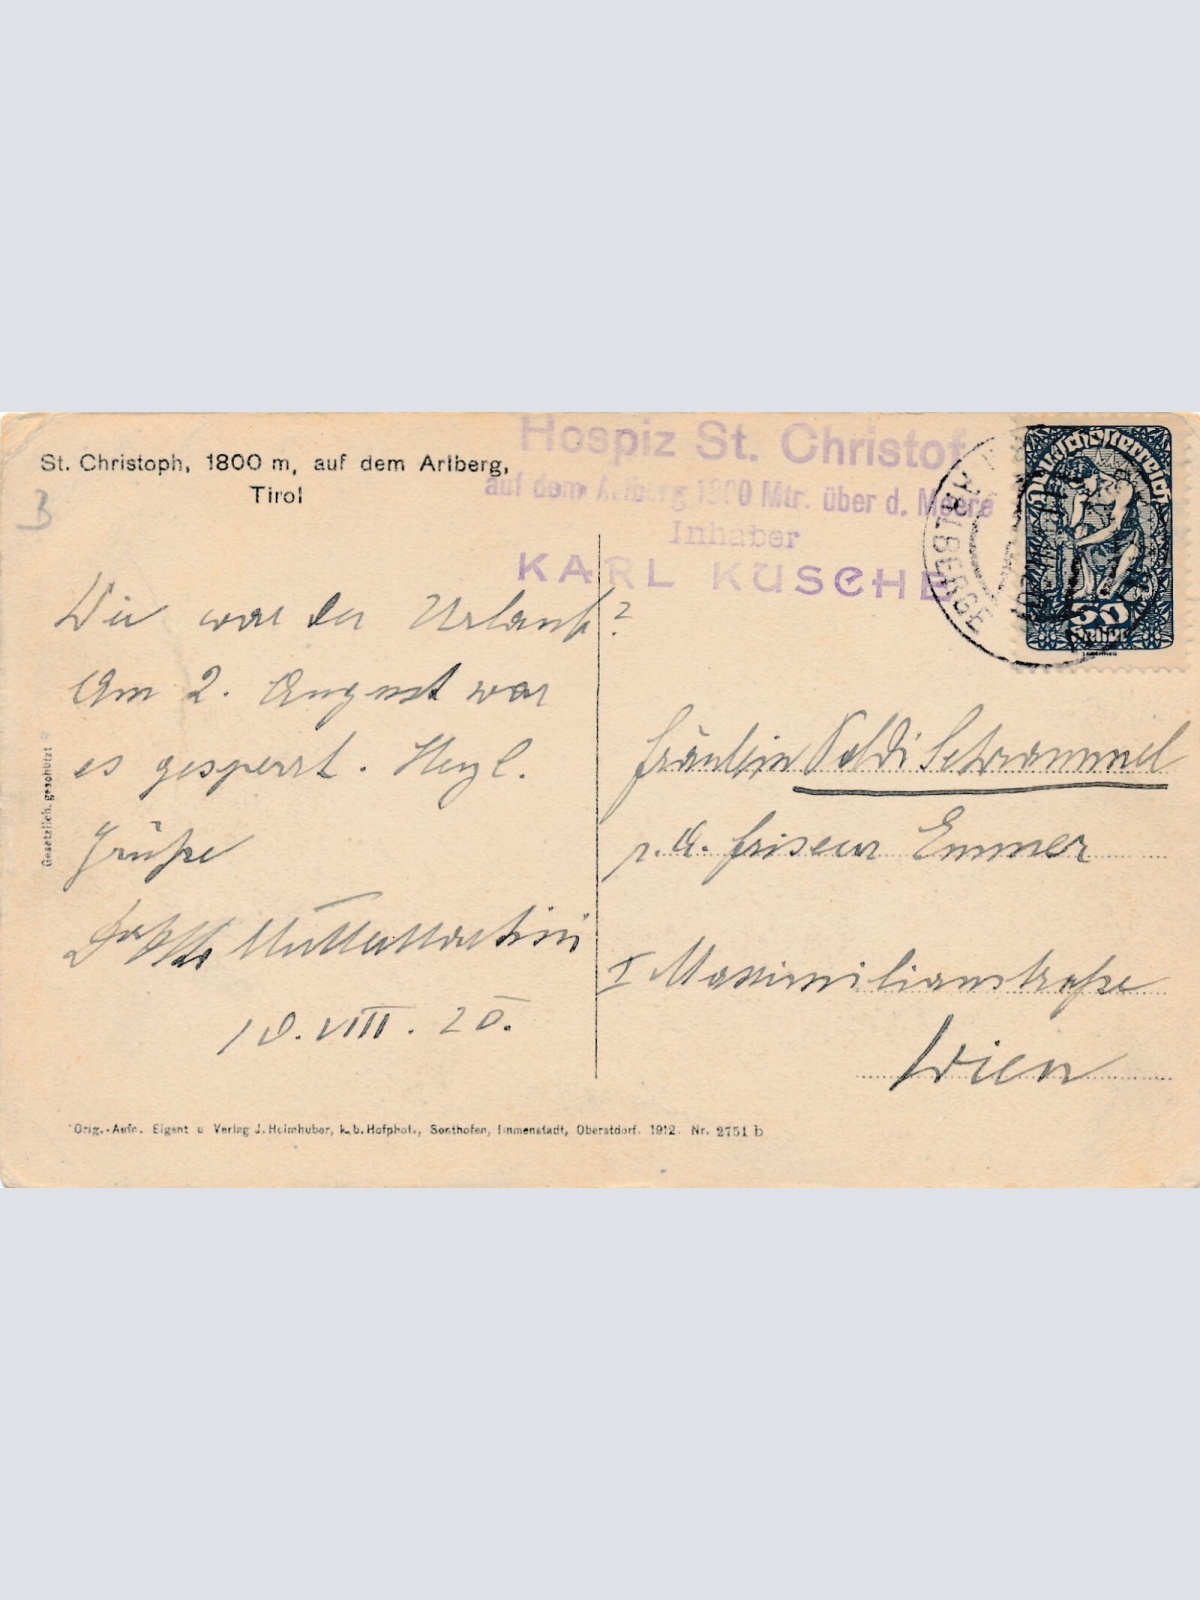 St. Christoph, 1800 m, auf dem Arlberg,
Tirol
3
Hospiz St. Christof
auf dem Arlberg 1800 Mtr. über d. Meere
Inhaber
KARL KUSCHE
ARLBERGE
Deutschösterreich
50
Heller
Wie war der Urlaub?
Am 2. August war
es gesperrt. Herzl.
Grüße
10.VIII.20.
Gesetzlich geschützt
Fräulein Poldi Schrammel
p. A. Friseur Emmer
I Maximilianstraße
Wien
Orig.-Aufn. Eigent u Verlag J. Heimhuber, k. b. Hofphot., Sonthofen, Immenstadt, Oberstdorf. 1912. Nr. 2751 b